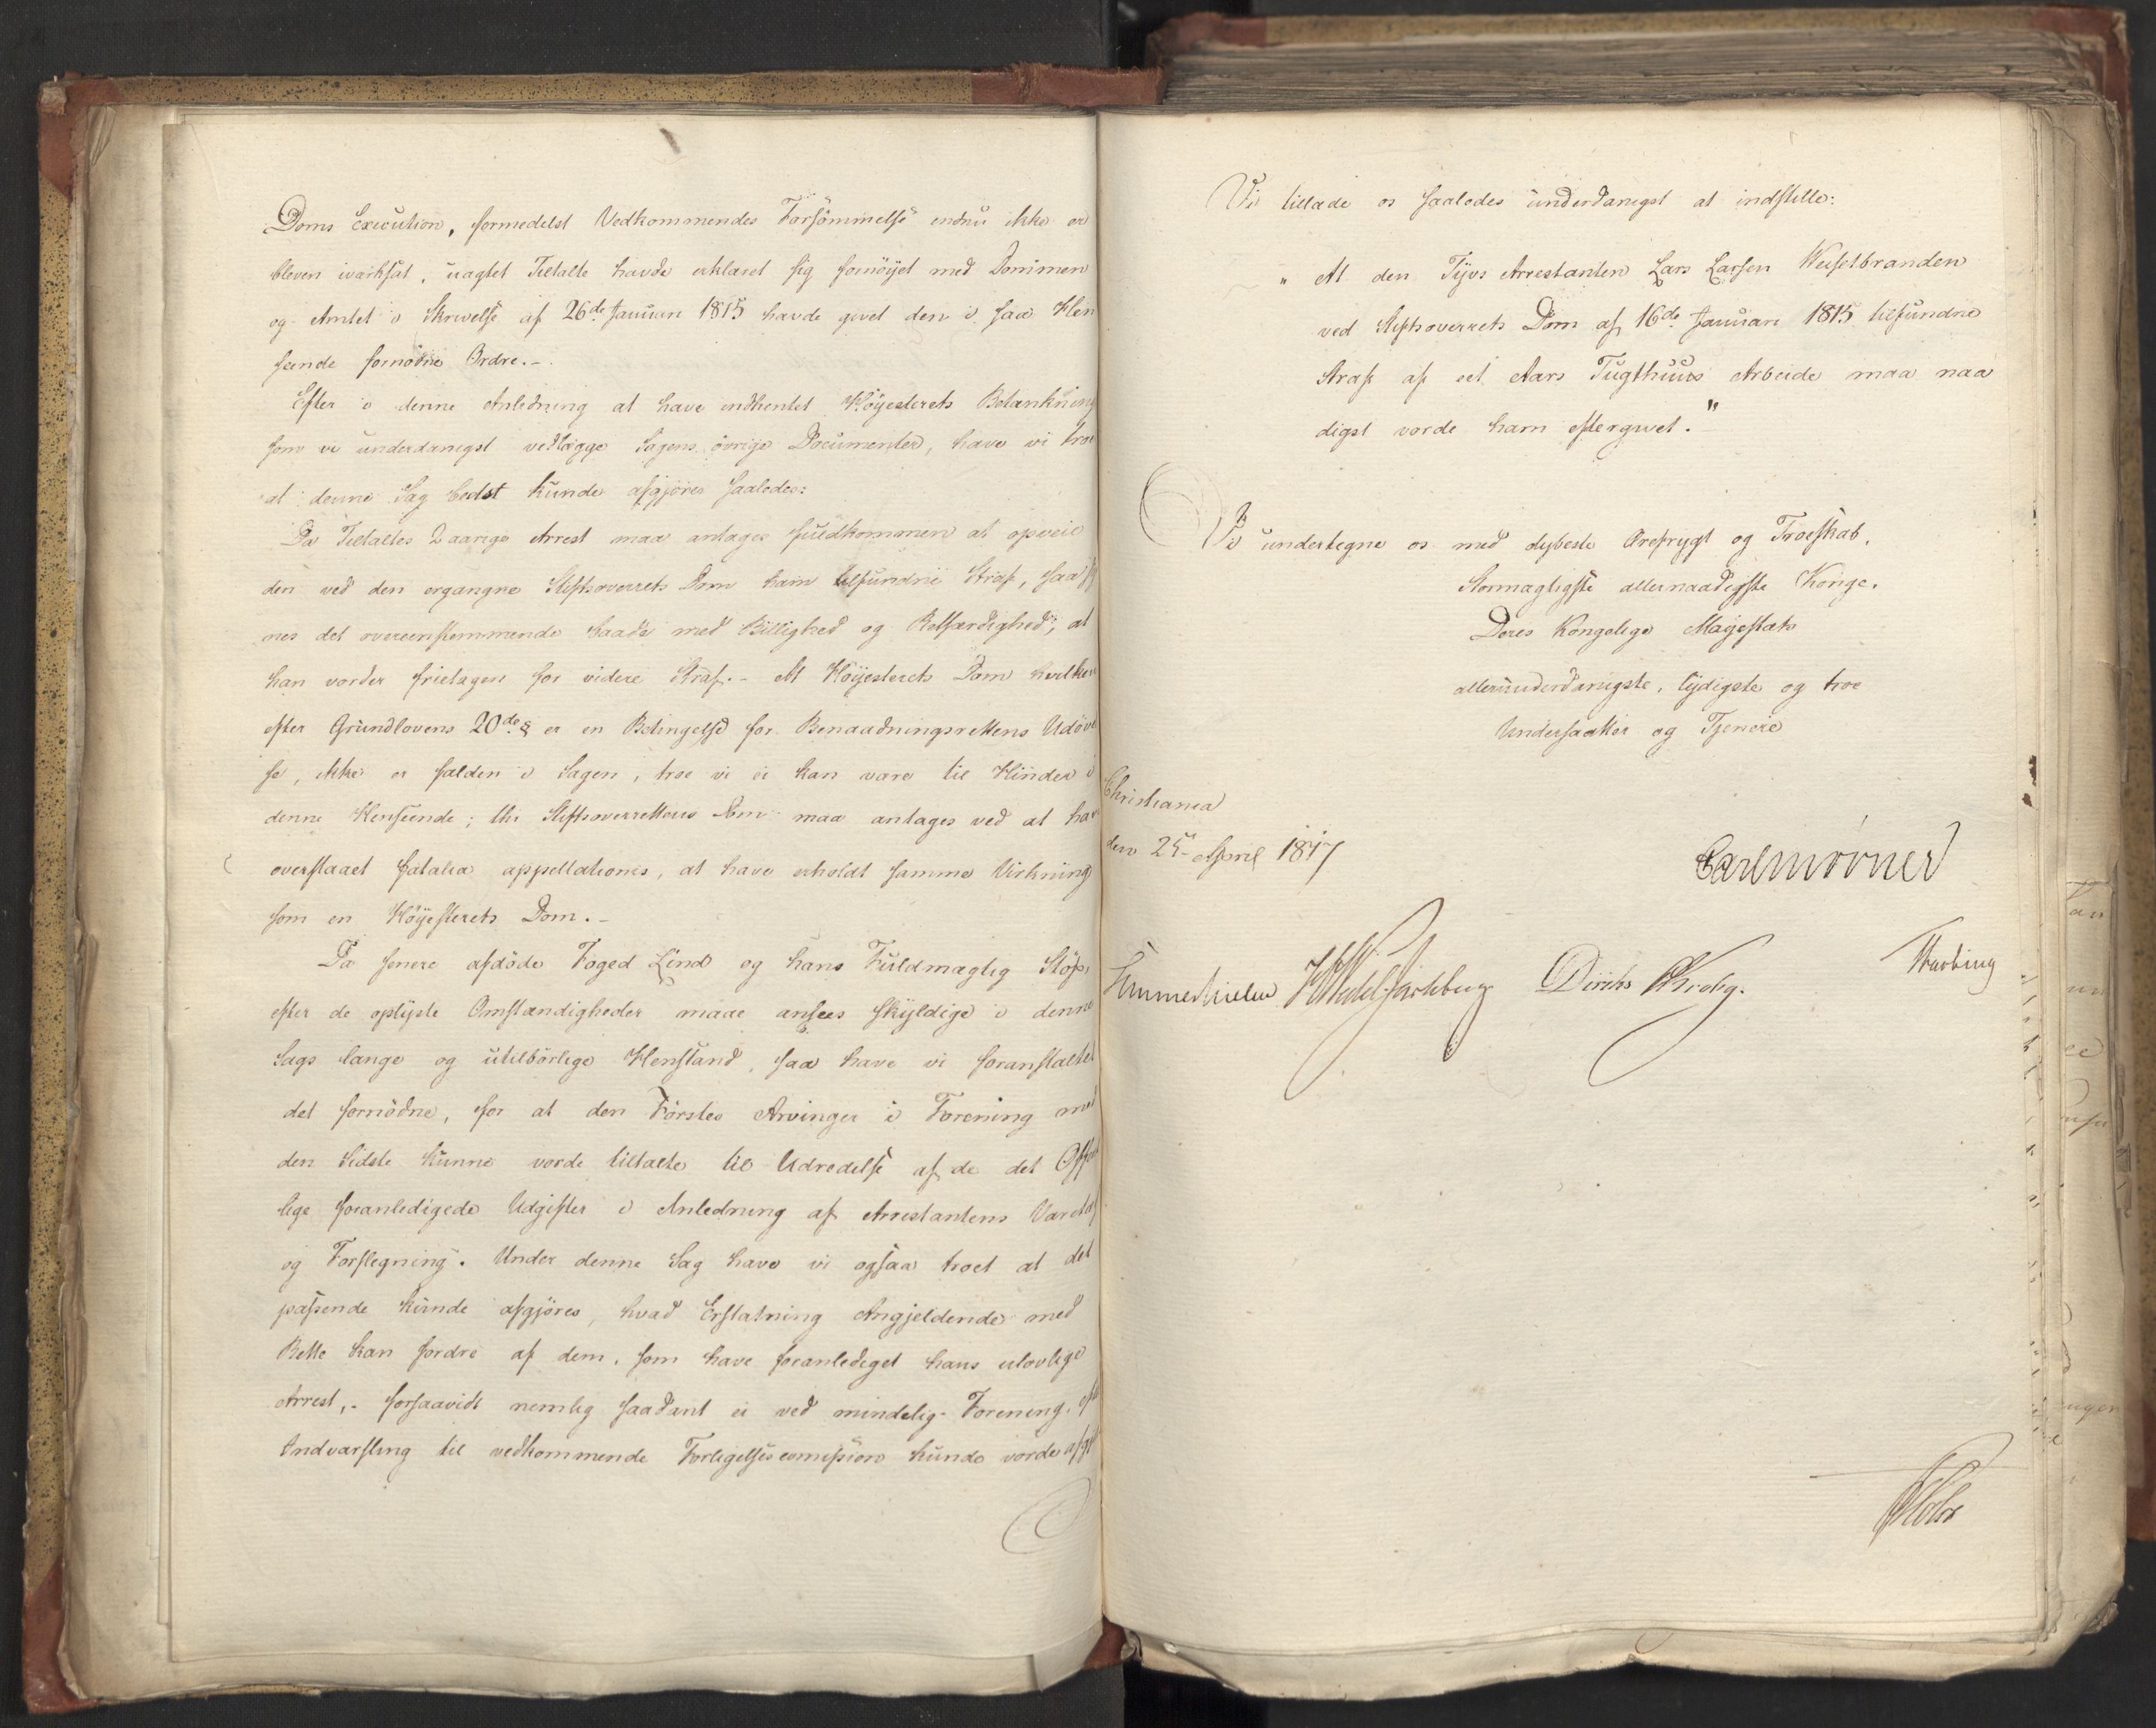 Doms Execution, formedelst Vedkommendes Forsömmelse endnu ikke er
bleven iværksat, uagtet Tiltalte havde erklæret sig fornöyet med Dommen
og Amtet i Skrivelse af 26de Januari 1815 havde givet den i saa Hen
seende fornödne Ordre.-
Efter i denne Anledning at have indhentet Höyesterets Betænkning
som vi underdanigst vedlægge Sagens övrige Documenter, have vi troet
at denne Sag bedst kunde afgjöres saaledes:
Da Tiltaltes 2 aarige Arrest maa antages fuldkommen at opveie
den ved den ergangne Stiftsoverrets Dom ham tilfundne Straf, saa sy
nes det overeenstemmende baade med Billighed og Retfærdighed, at
han vorder frietagen for videre Straf.- At Höyesterets Dom hvilken
efter Grundlovens 20de § er en Betingelse for Benaadningsrettens Udövel
se, ikke er falden i Sagen, troe vi ei kan være til Hinder i
denne Henseende; thi Stiftsoverrettens Dom maa antages ved at have
overstaaet fatalia appellationis, at have erholdt samme Virkning
som en Höyesterets Dom.-
Da senere afdöde Foged Lind og hans Fuldmægtig Stöp,
efter de oplyste Omstændigheder maae ansees skyldige i denne
Sags lange og utilbörlige Henstand, saa have vi foranstaltet
det fornödne, for at den Förstes Arvinger i Forening med
den Sidste kunne vorde tiltalte til Udredelse af de det Offent
lige foranledigede Udgifter i Anledning af Arrestantens Varetægt
og Forflegning. Under denne Sag have vi ogsaa troet at det
passende kunde afgjöres, hvad Erstatning Angjeldende med
Rette kan fordre af dem, som have foranlediget hans ulovlige
Arrest,- forsaavidt nemlig saadant ei ved mindelig Forening, efter
Indvarsling til vedkommende Forligelsescomission kunde vorde afgjort
Vi tillade os saaledes underdanigst at indstille:
" At den Tyvs Arrestanten Lars Larsen Weisetbranden
ved Stiftsoverrets Dom af 16de Januari 1815 tilfundne
Straf af eet Aars Tugthuus Arbeide maa naa
digst vorde ham eftergivet."
Vi undertegne os med dybeste Ærefrygt og Troeskab,
Stormægtigste allernaadigste Konge.
Deres Kongelige Mayestæts
allerunderdanigste, lydigste og troe
Undersaatter og Tjenere
Christiania
den 25 April 1817
Carl Mörner
Sommerhielm HWedel Jarlsberg Diriks Krohg. Thawling
Holst